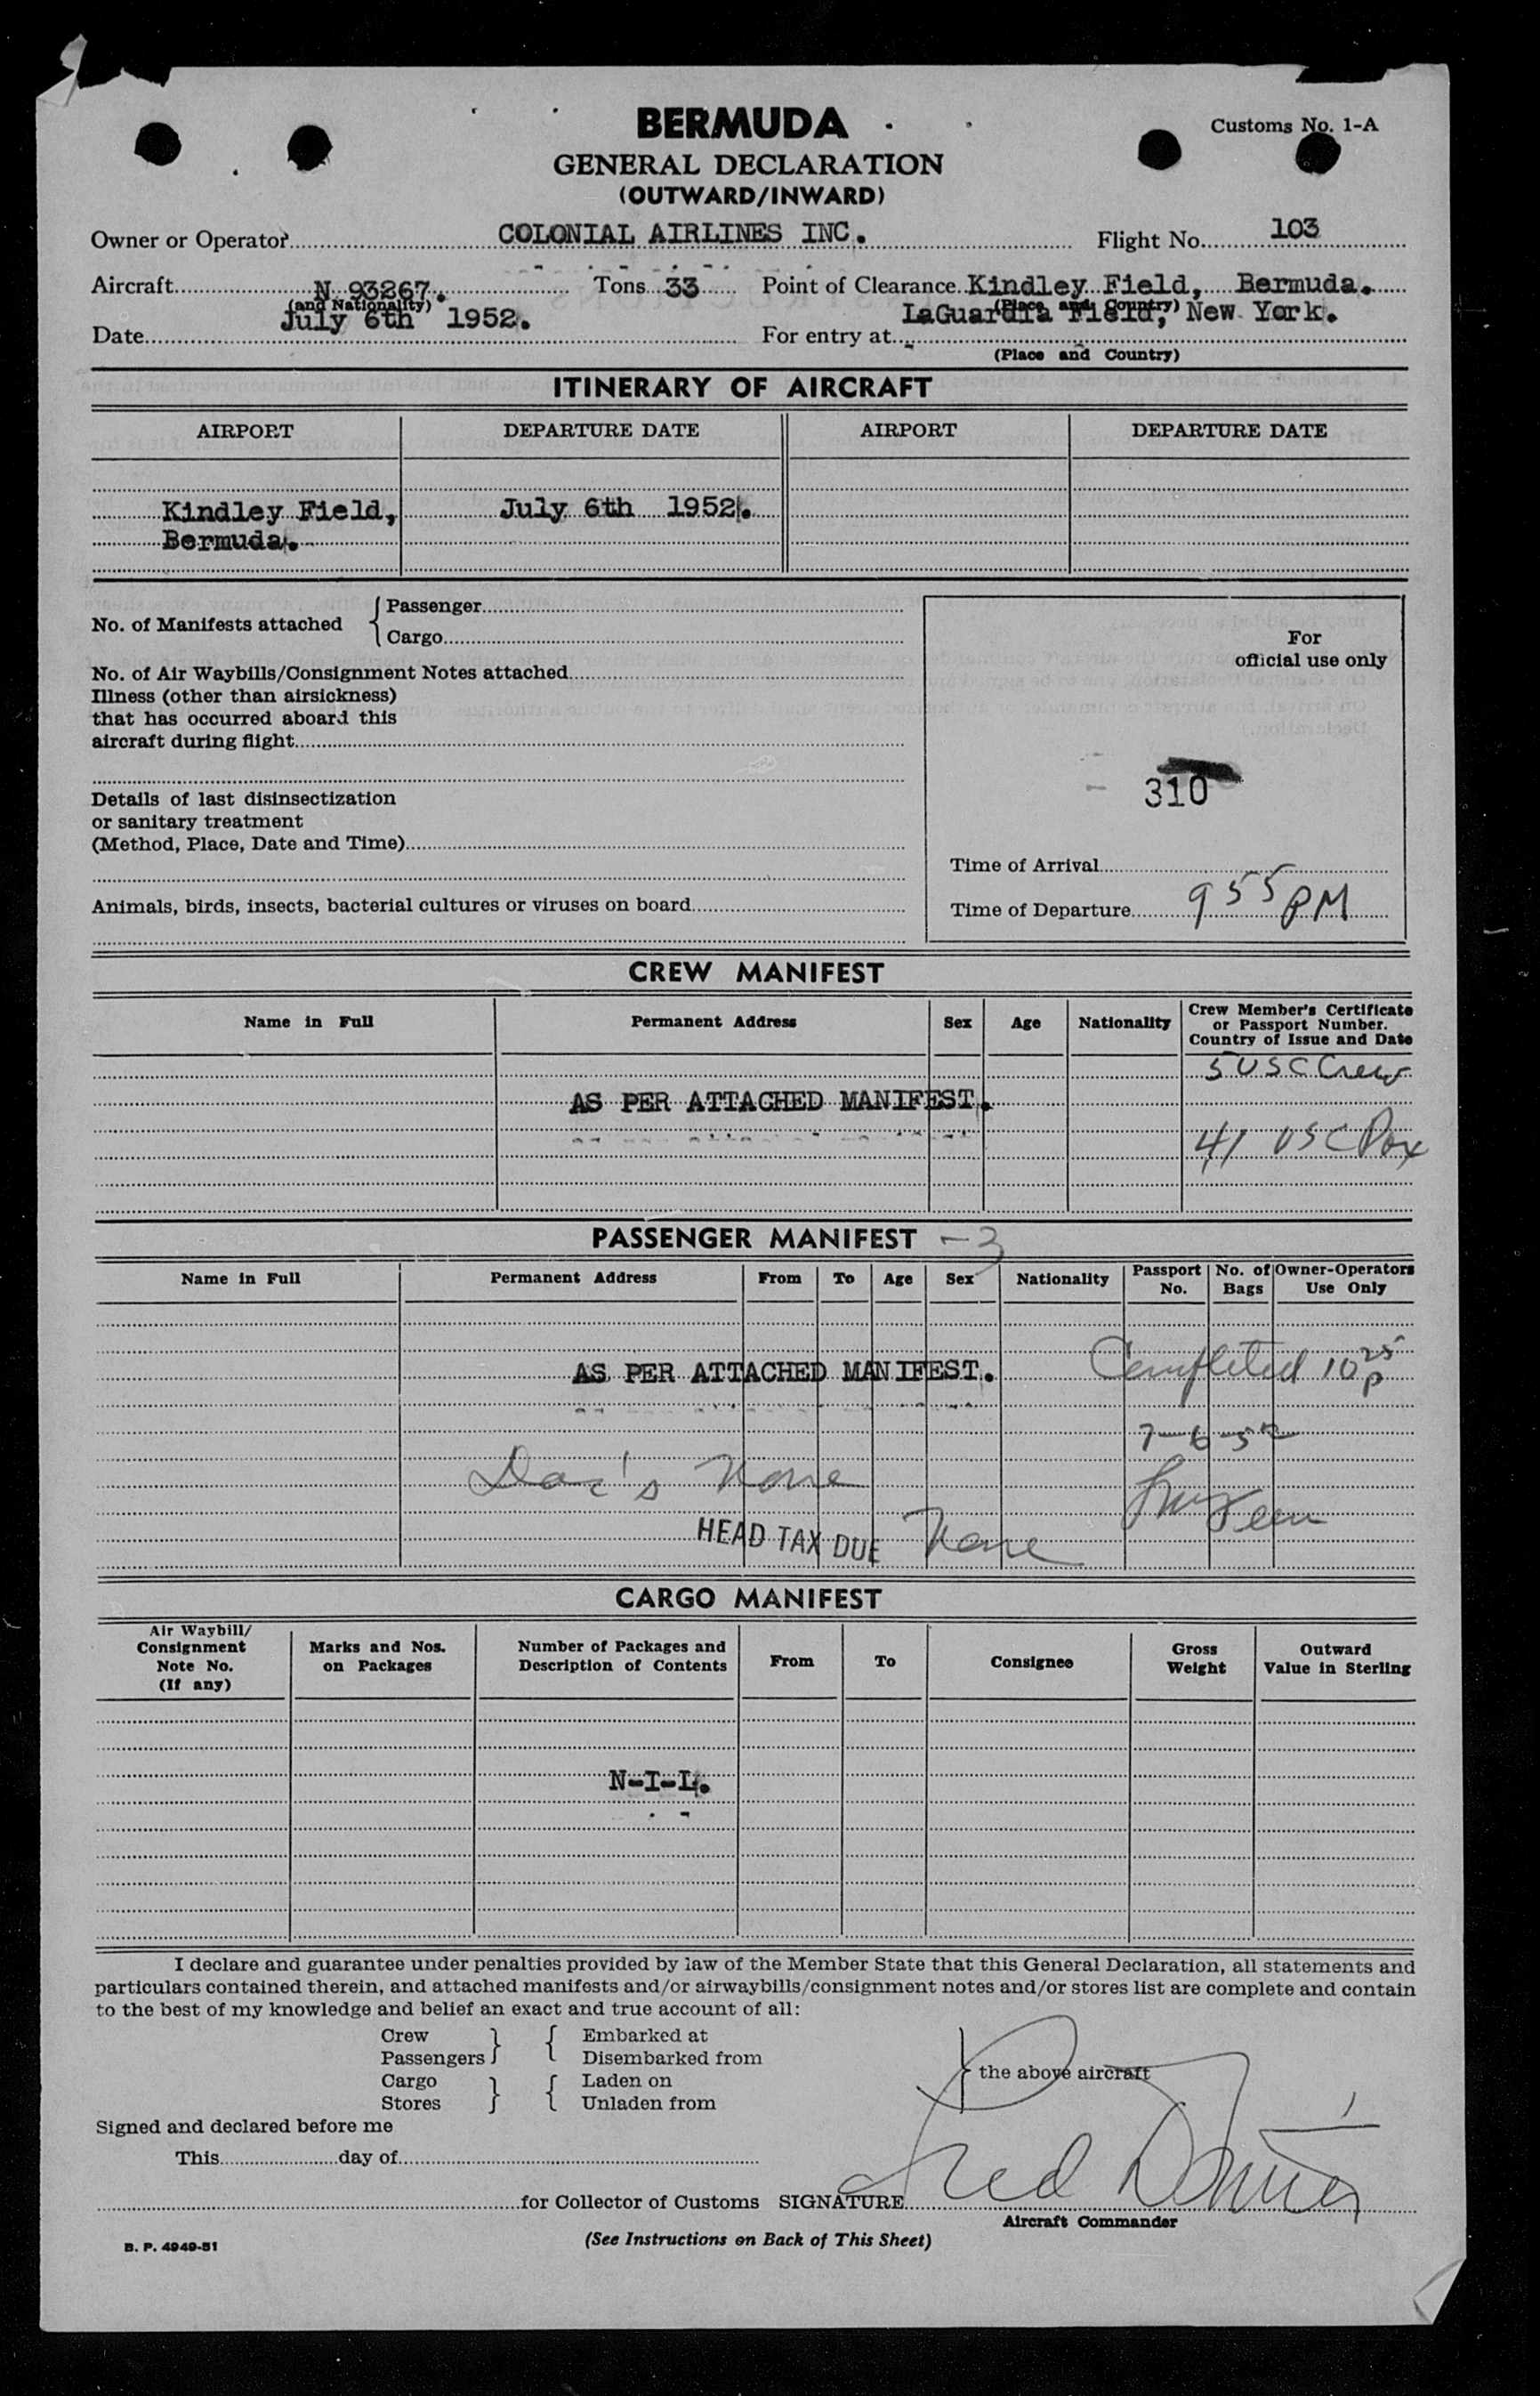 BERMUDA
Customs No. 1-A
GENERAL DECLARATION
(OUTWARD/INWARD)
Owner or Operator COLONIAL AIRLINES INC. Flight No. 103
Aircraft N 93267. Tons 33 Point of Clearance Kindley Field, Bermuda.
(and Nationality) (Place and Country)
Date July 6th 1952. For entry at LaGuardia Field, New York.
(Place and Country)
ITINERARY OF AIRCRAFT
AIRPORT DEPARTURE DATE AIRPORT DEPARTURE DATE
Kindley Field, July 6th 1952.
Bermuda.
No. of Manifests attached { Passenger
Cargo
For
official use only
No. of Air Waybills/Consignment Notes attached
Illness (other than airsickness)
that has occurred aboard this
aircraft during flight
310
Details of last disinsectization
or sanitary treatment
(Method, Place, Date and Time)
Time of Arrival
Animals, birds, insects, bacterial cultures or viruses on board
Time of Departure 9 55 PM
CREW MANIFEST
Name in Full Permanent Address Sex Age Nationality Crew Member's Certificate
or Passport Number.
Country of Issue and Date
5 USC Crew
AS PER ATTACHED MANIFEST.
41 USC Pax
PASSENGER MANIFEST - 3
Name in Full Permanent Address From To Age Sex Nationality Passport No. No. of Bags Owner-Operators Use Only
AS PER ATTACHED MANIFEST. Completed 10 25 P
7-6-52
Doc's None
HEAD TAX DUE None
CARGO MANIFEST
Air Waybill/
Consignment
Note No.
(If any)
Marks and Nos.
on Packages
Number of Packages and
Description of Contents
From To Consignee
Gross
Weight
Outward
Value in Sterling
N-I-L.
I declare and guarantee under penalties provided by law of the Member State that this General Declaration, all statements and
particulars contained therein, and attached manifests and/or airwaybills/consignment notes and/or stores list are complete and contain
to the best of my knowledge and belief an exact and true account of all:
Crew } { Embarked at
Passengers } { Disembarked from } the above aircraft
Cargo } { Laden on
Stores } { Unladen from
Signed and declared before me
This day of
for Collector of Customs SIGNATURE
Aircraft Commander
B. P. 4949-51 (See Instructions on Back of This Sheet)